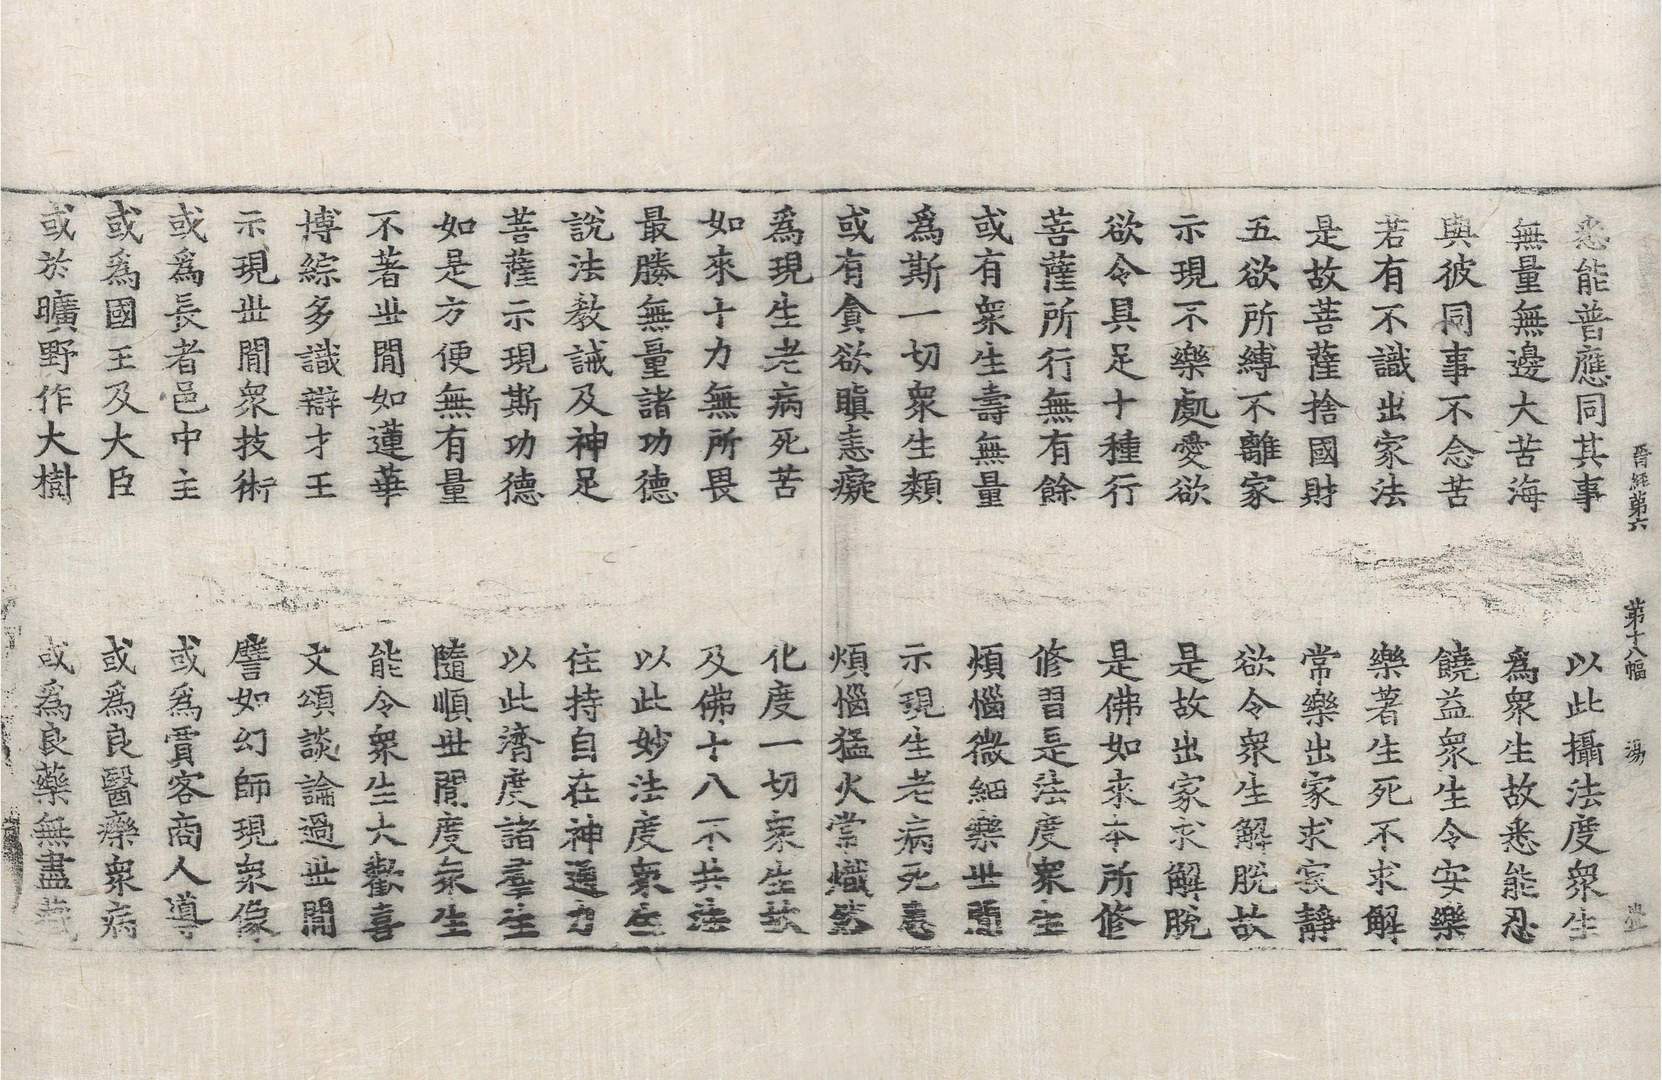 晉經第六 第十八幅 湯
悉能普應同其事 以此攝法度衆生
無量無邊大苦海 爲衆生故悉能忍
與彼同事不念苦 饒益衆生令安樂
若有不識出家法 樂著生死不求解
是故菩薩捨國財 常樂出家求寂靜
五欲所縛不離家 欲令衆生解脫故
示現不樂處愛欲 是故出家求解脫
欲令具足十種行 是佛如來本所修
菩薩所行無有餘 修習是法度衆生
或有衆生壽無量 煩惱微細樂世間
爲斯一切衆生類 示現生老病死患
或有貪欲瞋恚癡 煩惱猛火常熾然
爲現生老病死苦 化度一切衆生故
如來十力無所畏 及佛十八不共法
最勝無量諸功德 以此妙法度衆生
說法教誡及神足 住持自在神通力
菩薩示現斯功德 以此濟度諸羣生
如是方便無有量 隨順世間度衆生
不著世間如蓮華 能令衆生大歡喜
博綜多識辯才王 文頌談論過世間
示現世間衆技術 譬如幻師現衆像
或爲長者邑中主 或爲賈客商人導
或爲國王及大臣 或爲良醫療衆病
或於曠野作大樹 或爲良藥無盡藏